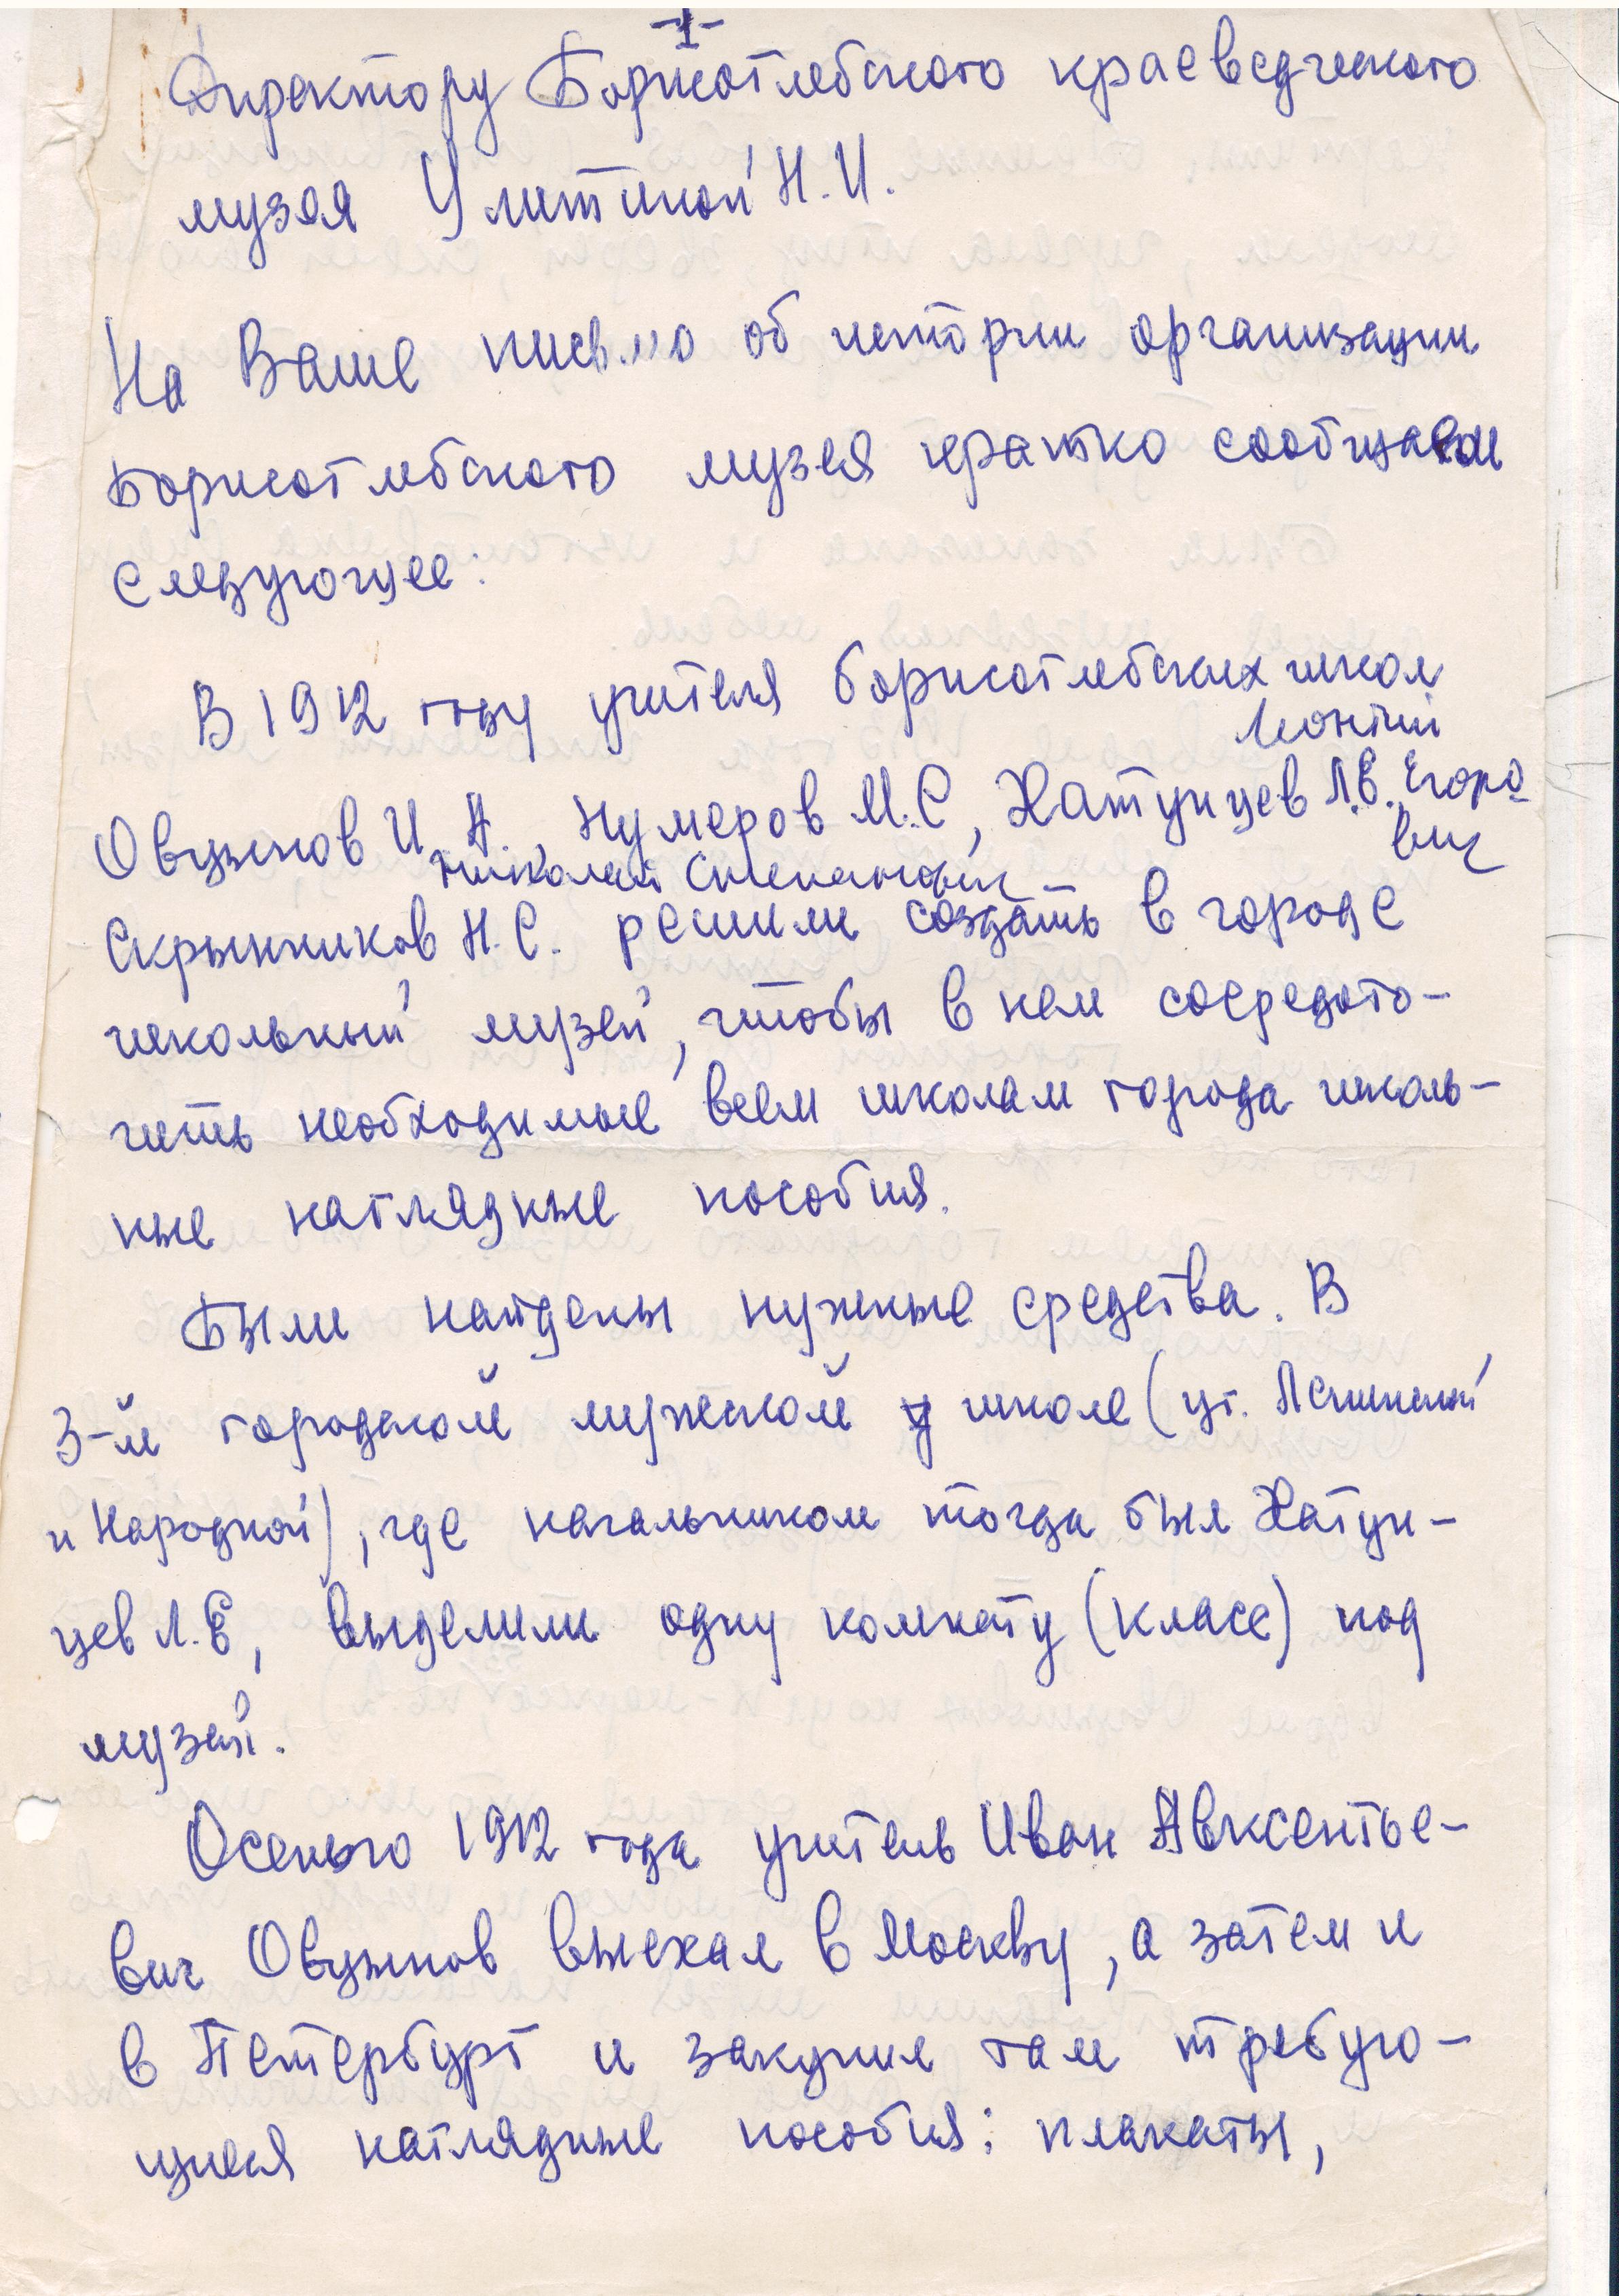 -1-
Директору Борисоглебского краеведческого
музея Улитиной Н.И.
На Ваше письмо об истории организации
Борисоглебского музея кратко сообщаем
следующее:
В 1912 году учителя борисоглебских школ
Леонтий
Овчинников И.А., Нумеров М.С, Хатунцев Л.Е. Егоро
вич
Николай Степанович
Скрынников Н.С. решили создать в городе
школьный музей, чтобы в нем сосредото-
чить необходимые всем школам города школь-
ные наглядные пособия.
Были найдены нужные средства. В
3-й городской мужской школе (уг. Ленинской
и Народной), где начальником тогда был Хатун-
цев Л.Е, выделили одну комнату (класс) под
музей.
Осенью 1912 года учитель Иван Авксентье-
вич Овужков выехал в Москву, а затем и
в Петербург и закупил там требую-
щиеся наглядные пособия: плакаты,